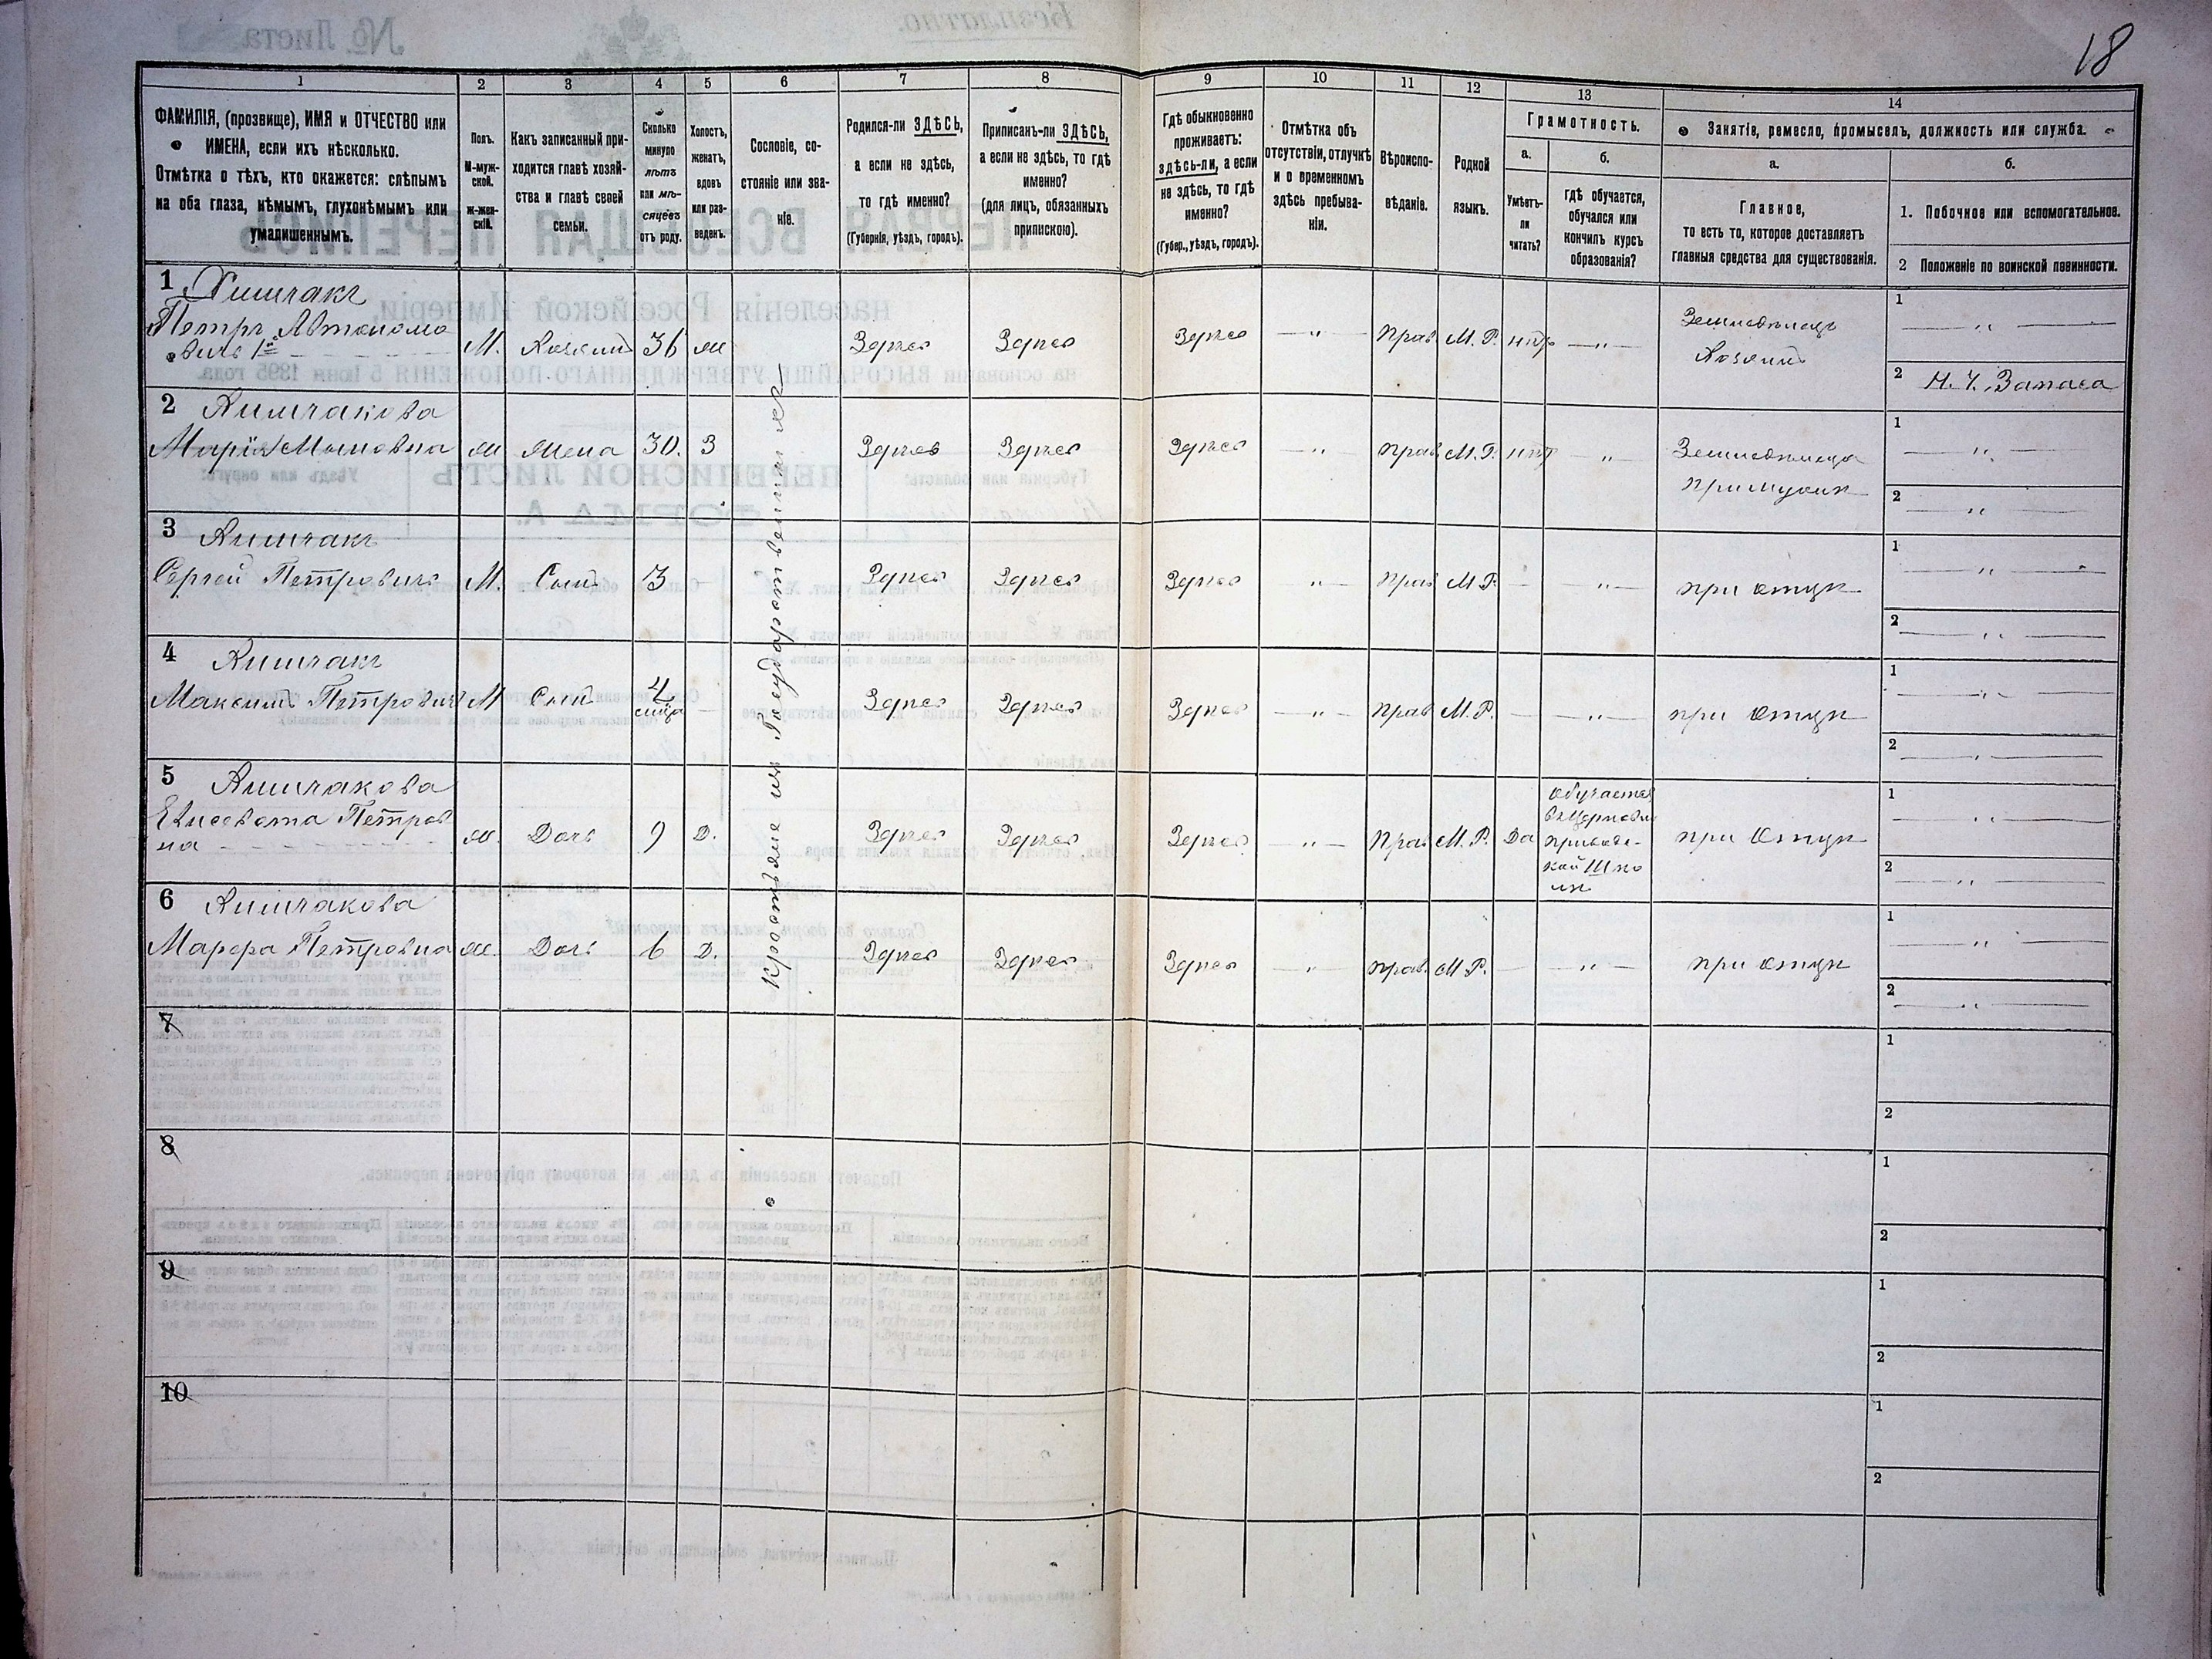 18
1
2
3
4
5
6
7
8
9
10
11
12
13
14
ФАМИЛІЯ, (прозвище), ИМЯ и ОТЧЕСТВО или
ИМЕНА, если ихъ нѣсколько.
Отмѣтка о тѣхъ, кто окажется: слѣпымъ
на оба глаза, нѣмымъ, глухонѣмымъ или
умалишеннымъ.
Полъ.
М-муж-
ской.
ж-жен-
скій.
Какъ записанный при-
ходится главѣ хозяй-
ства и главѣ своей
семьи.
Сколько
минуло
лѣтъ
или мѣ-
сяцевъ
отъ роду.
Холостъ,
женатъ,
вдовъ
или раз-
веденъ.
Сословіе, со-
стояніе или зва-
ніе.
Родился-ли ЗДѢСЬ,
а если не здѣсь,
то гдѣ именно?
(Губернія, уѣздъ, городъ).
Приписанъ-ли ЗДѢСЬ,
а если не здѣсь, то гдѣ
именно?
(для лицъ, обязанныхъ
припискою).
Гдѣ обыкновенно
проживаетъ:
здѣсь-ли, а если
не здѣсь, то гдѣ
именно?
(Губер., уѣздъ, городъ).
Отмѣтка объ
отсутствіи, отлучкѣ
и о временномъ
здѣсь пребыва-
ніи.
Вѣроиспо-
вѣданіе.
Родной
языкъ.
Грамотность.
а.
б.
Умѣетъ-
ли
читать?
гдѣ обучается,
обучался или
кончилъ курсъ
образованія?
Занятіе, ремесло, промыселъ, должность или служба.
а.
б.
Главное,
то есть то, которое доставляетъ
главныя средства для существованія.
1. Побочное или вспомогательное.
2 Положеніе по воинской повинности.
Крестьяне изъ Государственныхъ
1
Петръ Автономо
вичъ 1й
М. Хозяинъ 36 ж Здѣсь Здѣсь Здѣсь — " — Прав. М. Р. нѣтъ — " —
Земледѣлецъ
Хозяинъ
1 — " —
2 Н. Ч. Запаса
2
Марія
ж Жена 30. З Здѣсь Здѣсь Здѣсь — " — Прав. М. Р. нѣтъ — " —
Земледѣлица
при мужѣ
1 — " —
2 — " —
3
Сергей Петровичъ М. Сынъ 3 — Здѣсь Здѣсь Здѣсь — " — Прав М. Р. — — " — при отцѣ
1 — " —
2 — " —
4
Максимъ Петровичъ М Сынъ 4 — Здѣсь Здѣсь Здѣсь — " — Прав М. Р. — — " — при отцѣ
1 — " —
2 — " —
5
Елисавета Петров
на
ж. Дочь 9 Д. Здѣсь Здѣсь Здѣсь — " — Прав М. Р. Да
обучается
въ Церковно
приход-
ской Шко
лѣ
при отцѣ
1 — " —
2 — " —
6
Марфа Петровна ж. Дочь 6 Д. Здѣсь Здѣсь Здѣсь — " — прав. М. Р. — — " — при отцѣ
1 — " —
2 — " —
7
1
2
8
1
2
9
1
2
10
1
2